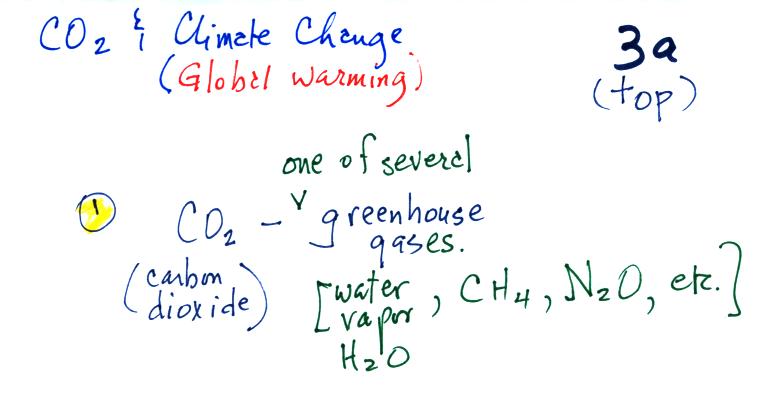 CO2 & Climate Change
(Global warming)
3a
(top)
one of several
1 CO2 – greenhouse
gases.
(carbon
dioxide)
[water
vapor, CH4, N2O, etc.]
H2O